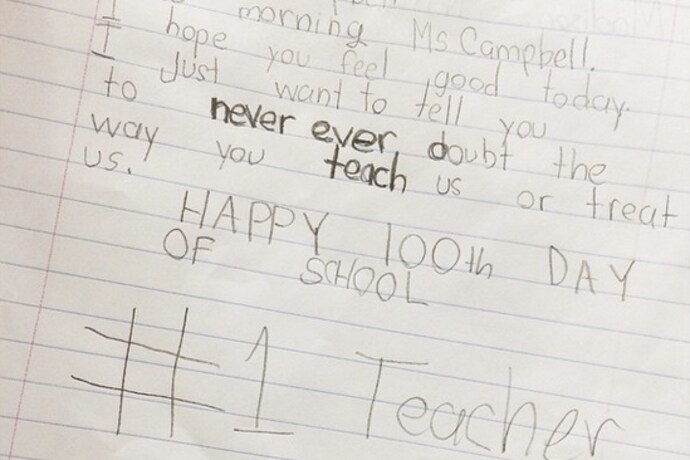 morning Ms Campbell.
I hope you feel good today.
I Just want to tell you
to never ever doubt the
way you teach us or treat
us.
HAPPY 100th DAY
OF SCHOOL
#1 Teacher